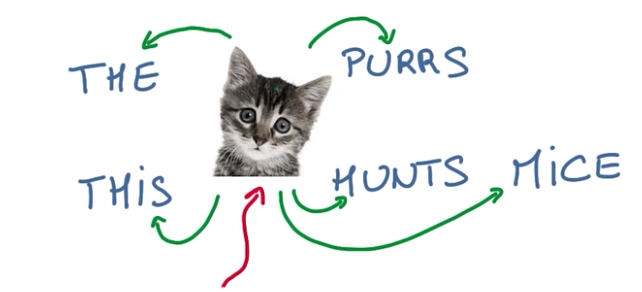 THE PURRS
THiS HUNTS MiCE